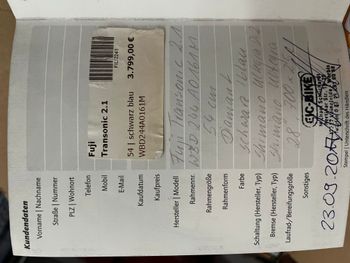 Kundendaten
Vorname | Nachname
Straße | Nummer
PLZ | Wohnort
Telefon
Mobil
E-Mail
Kaufdatum
Kaufpreis
Fuji
Transonic 2.1
54 | schwarz blau 3.799,00 €
WBD244A0161M
Hersteller | Modell Fuji Transonic 2.1
Rahmennr. WBD244A0161M
Rahmengröße 54 cm
Rahmenform Diamant
Farbe schwarz blau
Schaltung (Hersteller, Typ) Shimano Ultegra
Bremse (Hersteller, Typ) Shimano Ultegra
Laufrad-/Bereifungsgröße 28
Sonstiges
23.09.20
CIC-BIKE
Stempel | Unterschrift des Händlers